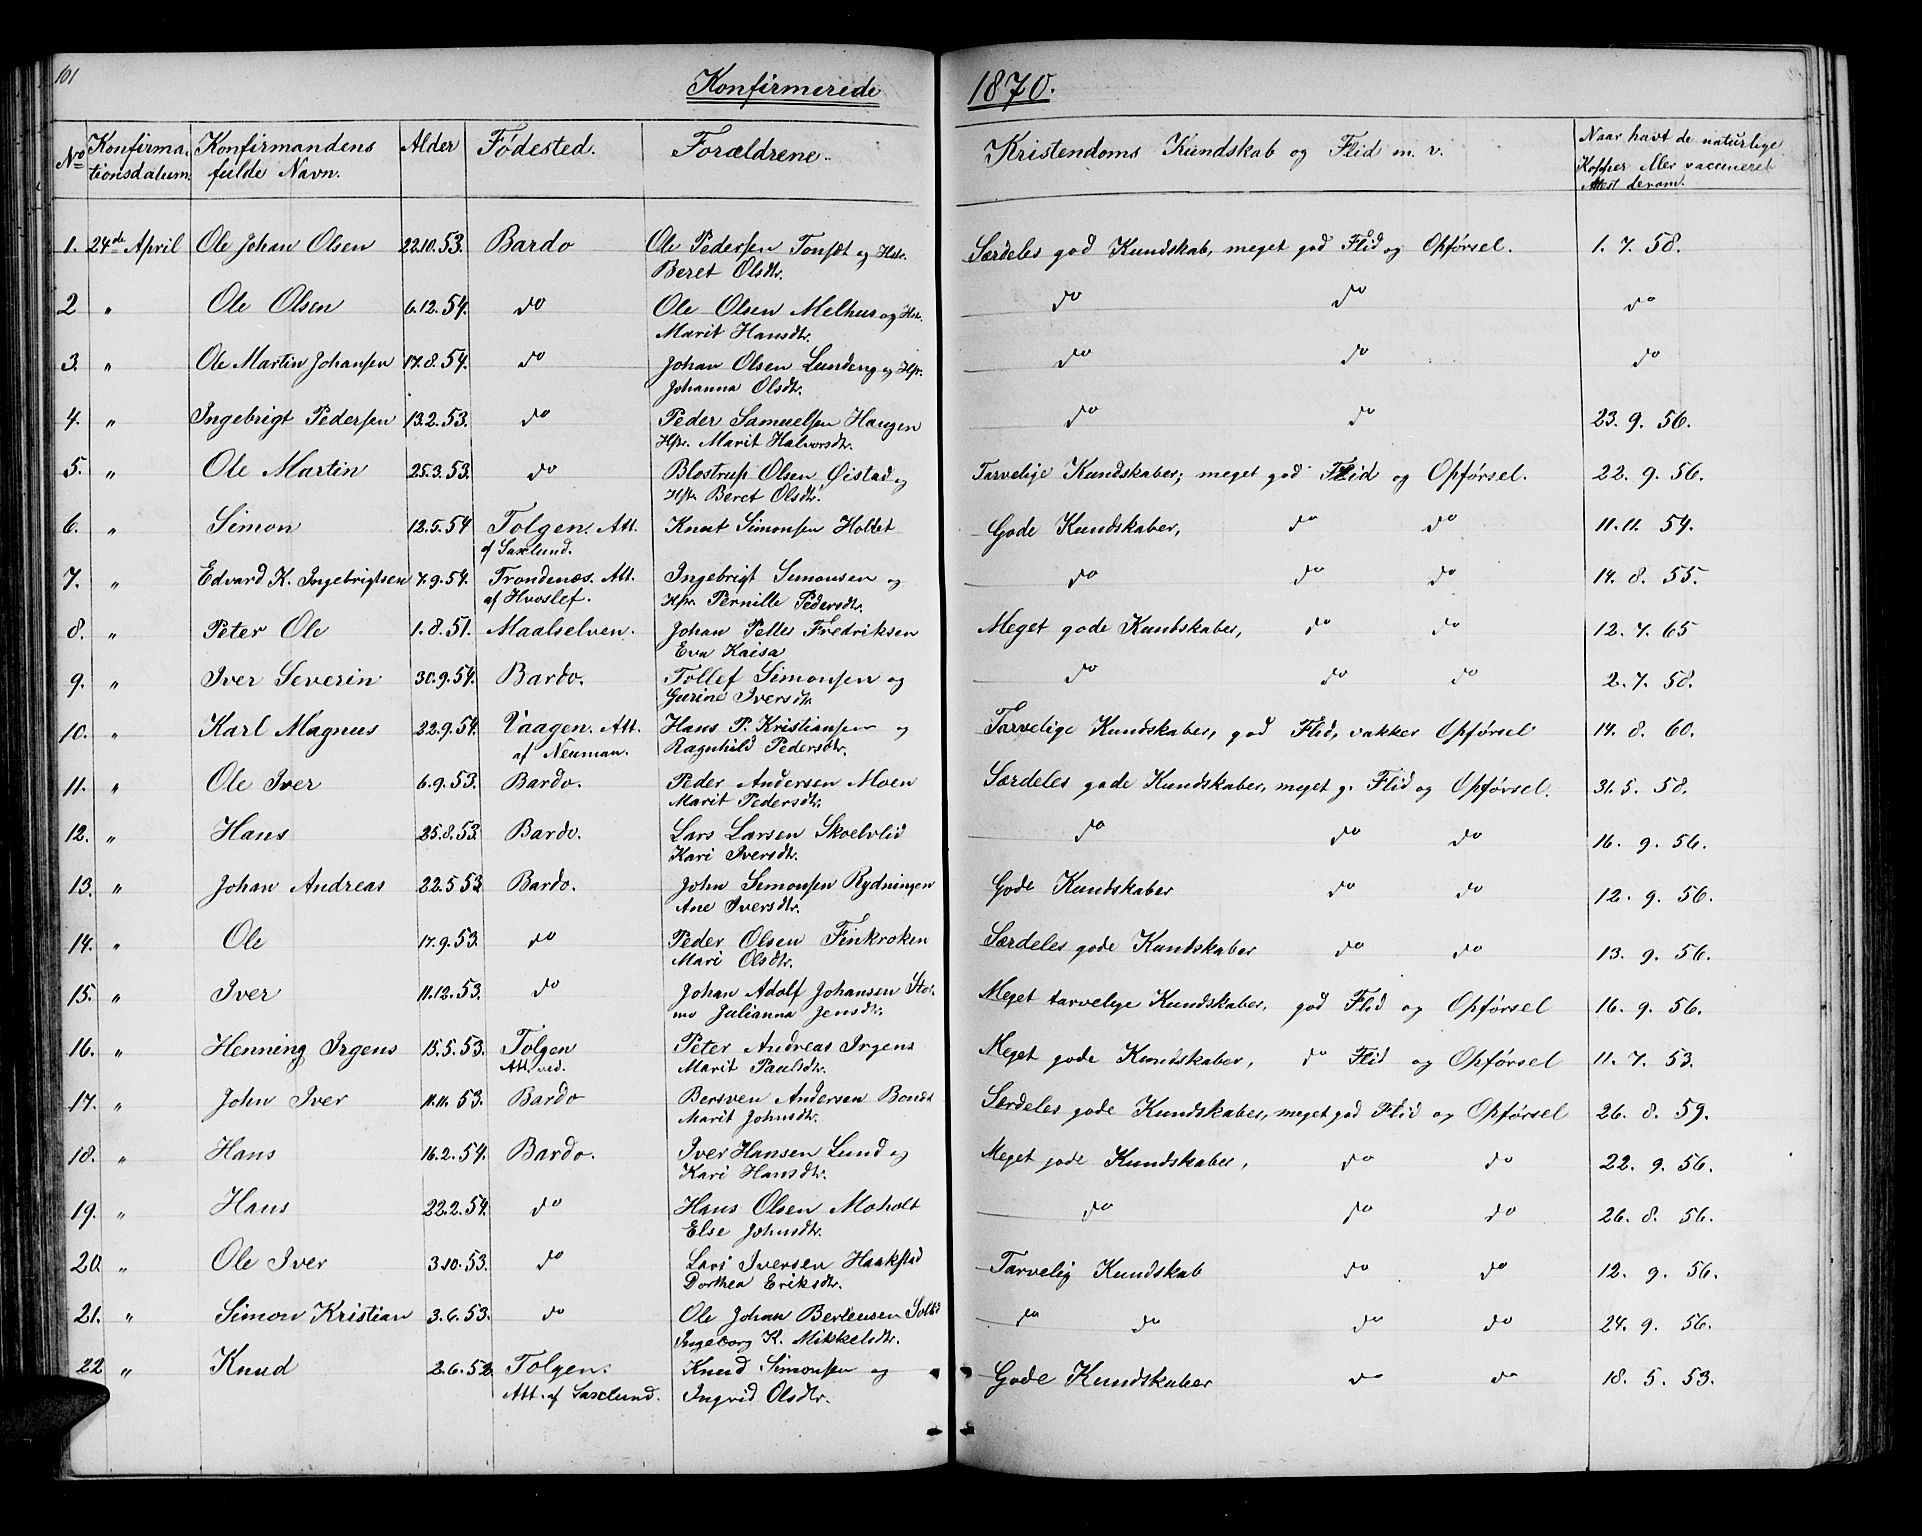 101
Konfirmerede 1870.
No Konfirmationsdatum. Konfirmandens fulde Navn. Alder Fødested. Forældrene. Kristendoms Kundskab og Flid m. v. Naar havt de naturlige Kopper eller vaccineret Attest derom.
1. 24de April Ole Johan Olsen 22.10.53. Bardo Ole Pedersen Tonset og Hstr. Særdeles god Kundskab, meget god Flid og Opførsel. 1. 7. 58.
Beret Olsdtr.
2 " Ole Olsen 6.12.54. do Ole Olsen Melhus og Hstr. do do do
Marit Hansdtr.
3. " Ole Martin Johansen 17.8.54. do Johan Olsen Lundeng og Hstr. do do do
Johanna Olsdtr.
4. " Ingebrigt Pedersen 13.2.53. do Peder Samuelsen Haugen do do 23. 9. 56.
Hstr. Marit Halvorsdtr.
5. " Ole Martin 25.3.53. do Blostrup Olsen Øistad og Tarvelige Kundskaber, meget god Flid og Opførsel. 22. 9. 56.
Hstr. Beret Olsdtr.
6. " Simon 12.5.54 Tolgen. Att. Knut Simonsen Holtet Gode Kundskaber, do do 11. 11. 54.
af Saxlund.
7. " Edvard K. Ingebrigtsen 7.9.54. Trondenæs. Att. Ingebrigt Simonsen og do do do 14. 8. 55.
af Hvoslef. Hstr. Pernille Pedersdtr.
8. " Peter Ole 1.8.51. Maalselven. Johan Pelles Fredriksen Meget gode Kundskaber, do do 12. 7. 65
Eva Kaisa
9. " Iver Severin 30.9.54. Bardo. Tollef Simonsen og do do do 2. 7. 58.
Gurine Iversdtr.
10. " Karl Magnus 22.9.54. Vaagen. Att. Hans P. Kristiansen og Tarvelige Kundskaber, god Flid, vakker Opførsel 14. 8. 60.
af Neuman. Ragnhild Pedersdtr.
11. " Ole Iver 6.9.53. Bardo. Peder Andersen Moen Særdeles gode Kundskaber, meget g. Flid og Opførsel. 31. 5. 58.
Marit Pedersdtr.
12. " Hans 25.8.53. Bardo. Lars Larsen Skoelvlid do do do 16. 9. 56.
Kari Iversdtr.
13. " Johan Andreas 22.5.53 Bardo. John Simonsen Rydningen Gode Kundskaber do do 12. 9. 56.
Ane Iversdtr.
14. " Ole 17.9.53. do Peder Olsen Finkroken Særdeles gode Kundskaber do do 13. 9. 56.
Mari Olsdtr.
15. " Iver 11.12.53. do Johan Adolf Johansen Stor- Meget tarvelige Kundskaber, god Flid og Opførsel 16. 9. 56.
mo Julianna Jensdtr.
16. " Henning Irgens 15.5.53. Tolgen Peter Andreas Irgens Meget gode Kundskaber, do Flid og Opførsel 11. 7. 53.
Att. ved. Marit Paulsdtr.
17. " John Iver 11.11.53. Bardo Bersven Andersen Særdeles gode Kundskaber, meget god Flid og Opførsel 26. 8. 59.
Marit Johnsdtr.
18. " Hans 16.2.54. Bardo. Iver Hansen Lund og Meget gode Kundskaber, do do 22. 9. 56.
Kari Hansdtr.
19. " Hans 22.2.54. do Hans Olsen Moholt do do do 26. 8. 56.
Else Johnsdtr.
20. " Ole Iver 3.10.53. do Lars Iversen Haakstad Tarvelig Kundskab do do 12. 9. 56.
Dorthea Eriksdtr.
21. " Simon Kristian 3.6.53. do Ole Johan Berteusen do do do do 24. 9. 56.
Ingeborg K. Mikkelsdtr.
22 " Knud 2.6.52 Tolgen. Knud Simonsen og Gode Kundskaber do do 18. 5. 53.
Att. af Saxlund. Ingrid Olsdtr.